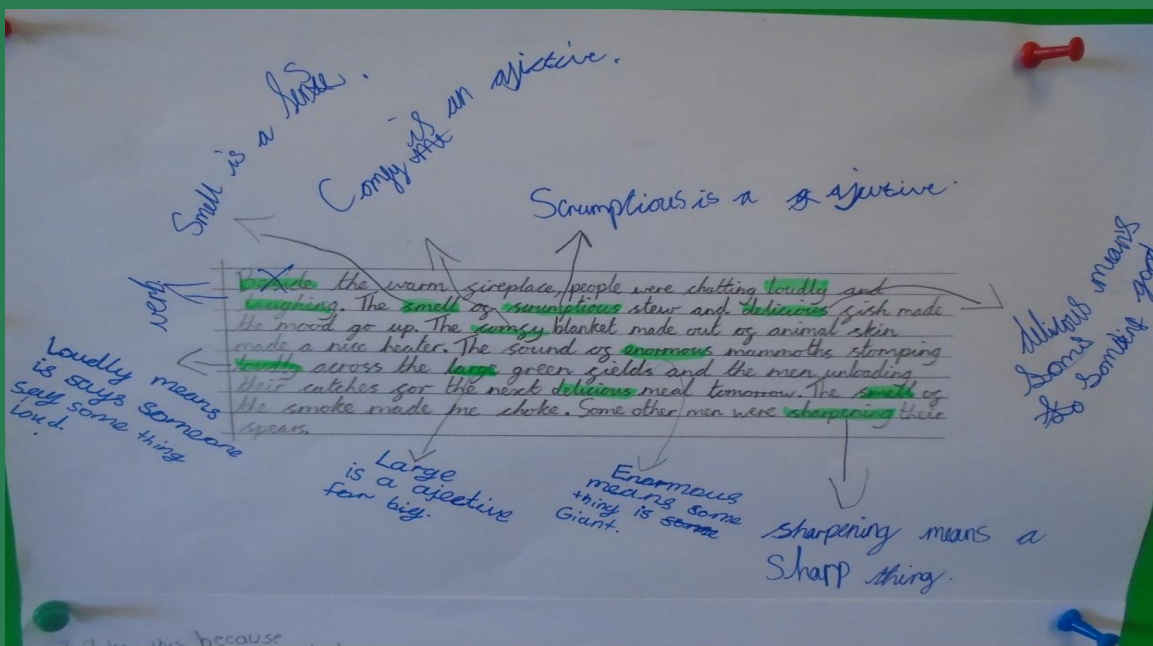 Smell is a Sense.
Comfy is an ajictive.
Scrumptious is a ajective.
Beside the warm fireplace, people were chatting loudly and
laughing. The smell of scrumptious stew and delicious fish made
the mood go up. The comfy blanket made out of animal skin
made a nice heater. The sound of enormous mammoths stomping
loudly across the large green fields and the men unloading
their catches for the next delicious meal tomorrow. The smell of
the smoke made me choke. Some other men were sharpening their
spears.
verb
Loudly means
is says someone
say some thing
Loud.
Large
is a ajective
for big.
Enormous
means some
thing is some
Giant.
sharpening means a
Sharp thing.
means
good
this because